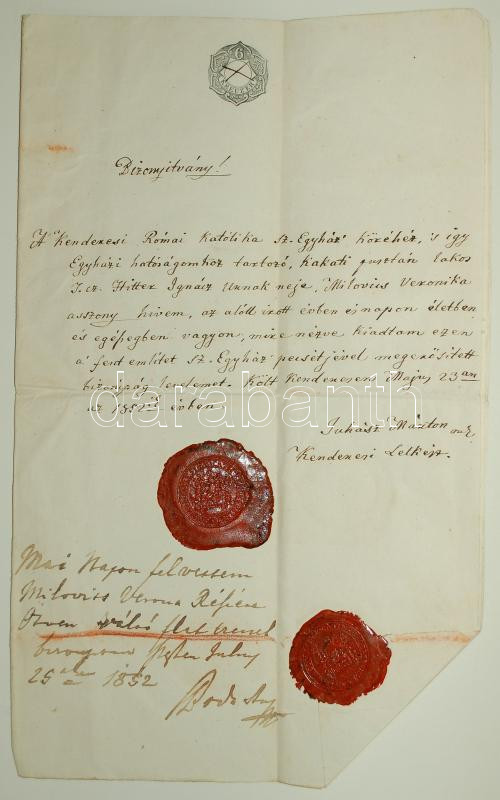 6
Bizonyitvány!
A Kenderesi Római Katólika sz. Egyház' Köréhez, 's így
Egyházi hatóságomhoz tartozó, Kakati pusztán lakos
T. cz. Hitter Ignácz Urnak neje, Milovius Veronika
asszony hivem, az alólt irott évben és napon életben
és egésségben vagyon, mire nézve kiadtam ezen
a' fent emlitet sz. Egyház pecsétjével megerősitett
bizonyság levelemet. Költ Kenderesen Majus 23án
az 1852ik évben
darabanth
Juhász Márton
Kenderesi Lelkész.
Mai Napon felvettem
Milovits Verona Részére
Ötven
Pesten July
25 1852